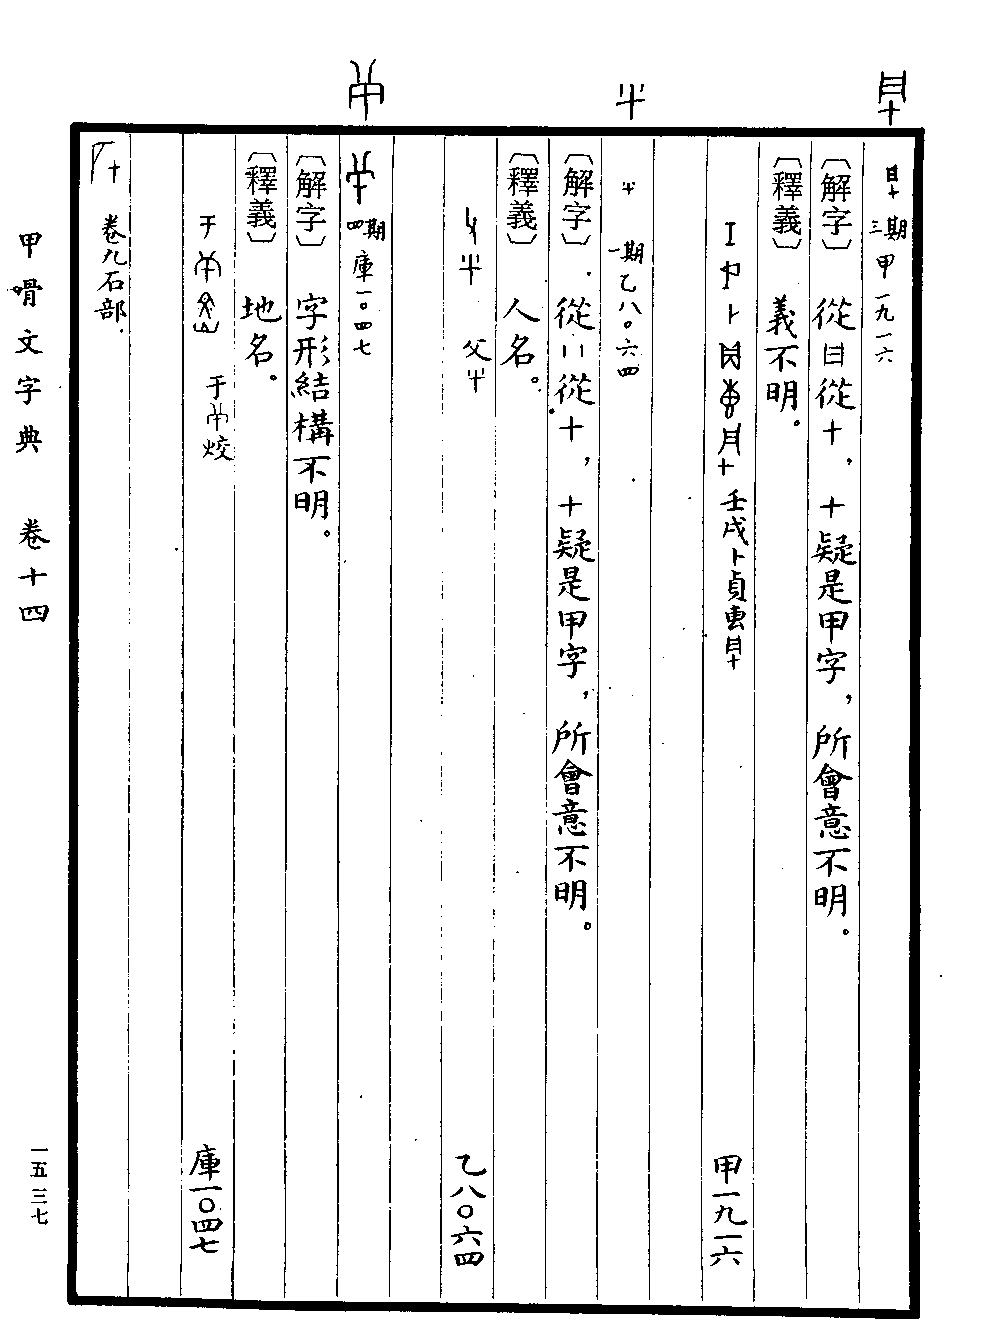 三期 甲一九一六
〔解字〕 從 從十，十疑是甲字，所會意不明。
〔釋義〕 義不明。
壬戌卜貞叀 甲一九一六
一期 乙八〇六四
〔解字〕 從 從十，十疑是甲字，所會意不明。
〔釋義〕 人名。
父 乙八〇六四
四期 庫一〇四七
〔解字〕 字形結構不明。
〔釋義〕 地名。
于 烄 庫一〇四七
卷九石部．
甲骨文字典 卷十四
一五三七